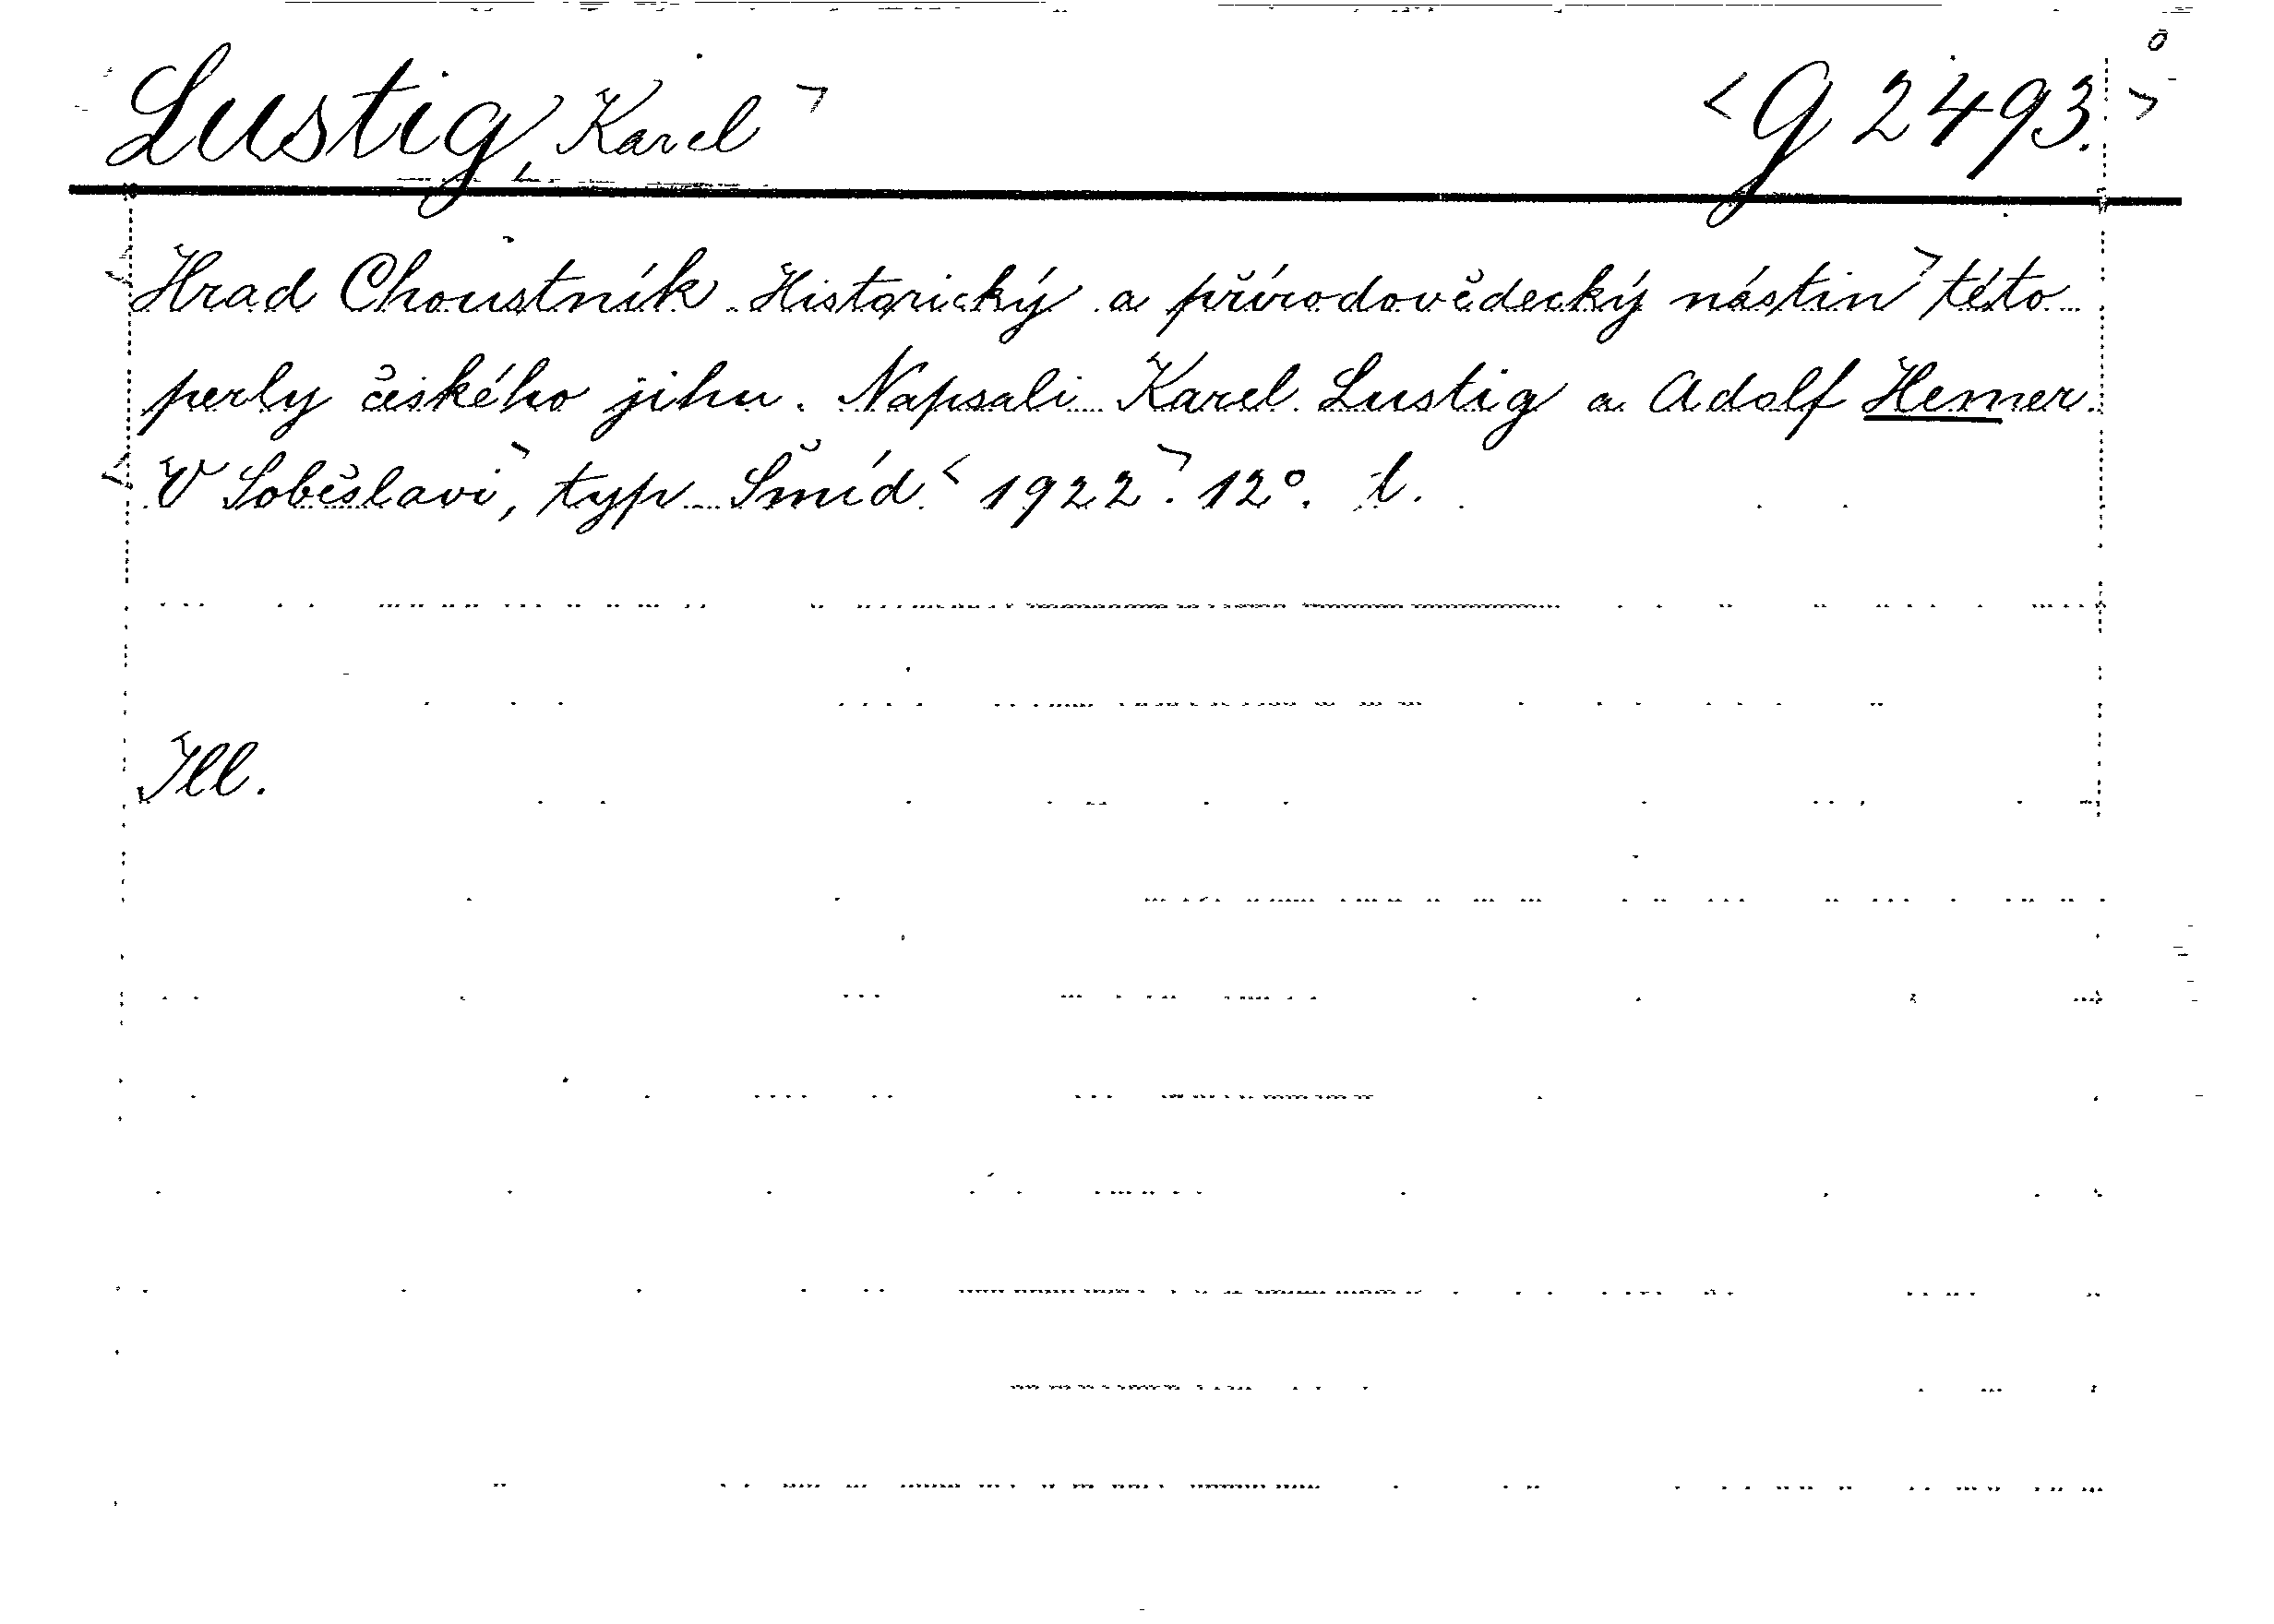 Lustig, Karel <G 2493.>
Hrad Choustník. Historický a přírodovědecký nástin této
perly českého jihu. Napsali Karel Lustig a Adolf Hemer.
V Soběslavi, typ. Šmíd. 1922. 12°.
Ill.